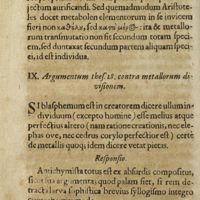 jectum aurificandi. Sed quemadmodum Aristote-
les docet metabolen elementorum in se invicem
fieri non
rum transmutatio non fit secundum totam speci-
em, sed duntaxat secundum partem aliquam speci-
ei, id est individua.
IX. Argumentum thes. 18. contra metallorum di-
visionem.
SI blasphemum est in creatorem dicere ullum in-
dividuum (excepto homine) esse melius atque
perfectius altero (nam ratione creationis, nec ele-
phas ove, nec cerebrus corylo perfectior est) certe
de metallis quoq; idem dicere vetat pietas.
Responsio.
Antichymista totus est ex absurdis compositus,
sicut sua argumenta: quod palam fiet, si rem de-
tracta larva sophistica brevius syllogismo integro